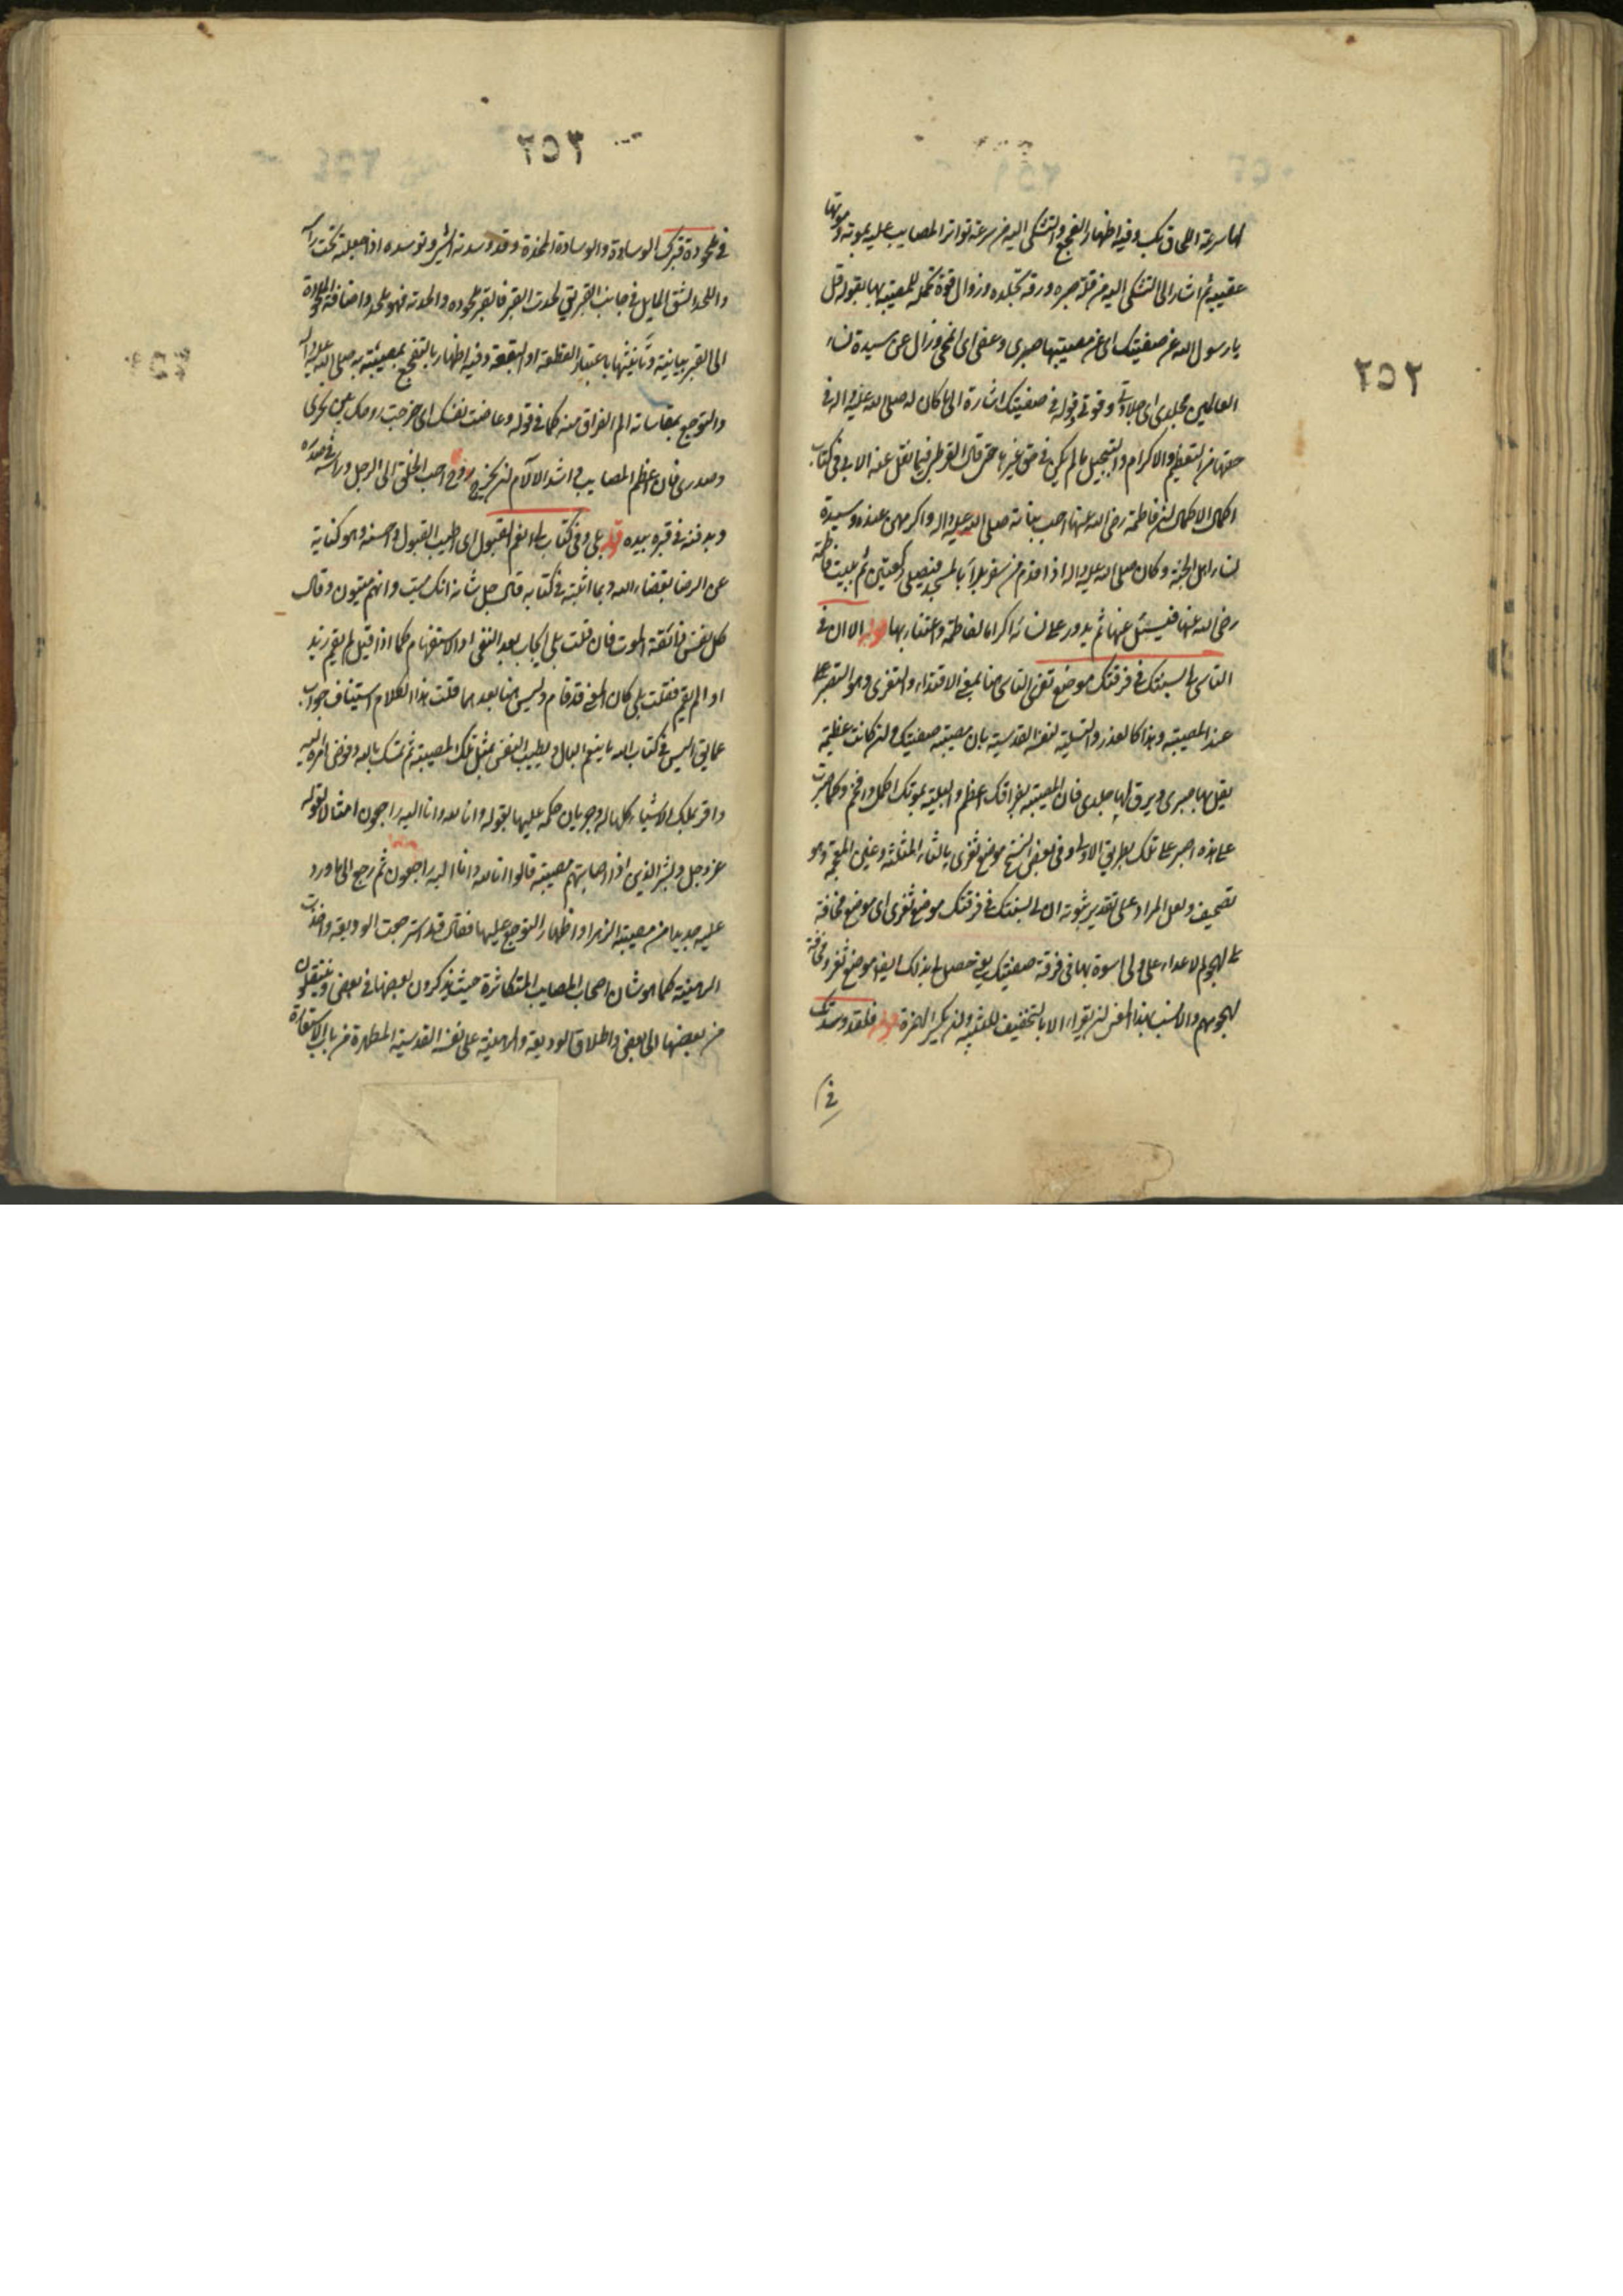 ٢٥٢
لها سرعة اللحاق بك وفيه اظهار التفجع والتشكى اليه من سرعة تواتر المصايب عليه بموته وموتها
عقيبه ثم اشار الى التشكى اليه من قلة صبره ورقة تجلده وزوال قوة تحمله للمصيبة بها بقوله قل
يا رسول الله عن صفيتك اى عن مصيبتها صبرى وعفى اى انمحى وزال عن سيدة نساء
العالمين تجلدى اى جلادتى وقوتى وقوله صفيتك اشارة الى ما كان له صلى الله عليه واله فى
حقها من التعظيم والاكرام والتبجيل ما لم يكن فى حق غيرها حتى قال القرطبى فيما نقل عنه الابى فى كتاب
اكمال الاكمال ان فاطمة رضى الله عنها احب بناته صلى الله عليه واله واكرمهن عنده وسيدة
نساء اهل الجنة وكان صلى الله عليه واله اذا قدم من سفر بدأ بالمسجد فيصلى ركعتين ثم ببيت فاطمة
رضى الله عنها فيسئل عنها ثم يدور على نسائه اكراما لفاطمة واعتناء بها قوله الا ان فى
التاسى لى بسنتك فى فرقتك موضع تعز التاسى هنا بمعنى الاقتداء والتعزى وهو التصبر على
عند المصيبة وهذا كالعذر والتسلية لنفسه القدسية بان مصيبة صفيتك وان كانت عظيمة
يقل بها صبرى ويرق لها جلدى فان المصيبة بفراقك اعظم والبلية بموتك اكمل وافخم وكما صبرت
على هذه اصبر على تلك بطريق الاولى وفى بعض النسخ موضع ثغرى بالثاء المثلثة وغين المعجمة وهو
تصحيف ولعل المراد على تقدير ثبوته ان لى بسنتك فى فرقتك موضع ثغرى اى موضع مخافة
لى لهجوم الاعداء على ولى اسوة بها فى فرقة صفيتك يعنى حصل لى بذلك ايضا موضع ثغر ومخافة
لهجومهم والانسب بهذا المعنى ان يقراء الا بالتخفيف للتنبيه وان بكسر الهمزة قوله فلقد وسدتك
فى
٢٥٣
فى ملحودة قبرك الوسادة والوسادة المخدة وقد وسدته الشىء وتوسده اذا جعله تحت راسه
واللحد الشق المايل فى جانب القبر يق لحدت القبر فالقبر ملحوده والحدته فهو ملحد واضافة الملحودة
الى القبر بيانية وتانيثها باعتبار القطعة او البقعة وفيه اظهار بالتفجع بمصيبته به صلى الله عليه واله
والتوجع بمقاساته الم الفراق منه كما فى قوله وفاضت نفسك اى خرجت روحك بين نحرى
وصدرى فان اعظم المصايب واشد الالام ان يخرج روح احب الخلق الى الرجل وراسه فى صدره
ويدفنه فى قبره بيده قوله بلى وفى كتاب الله لى انعم القبول اى اطيب القبول واحسنه وهو كناية
عن الرضا بقضاء الله وبما اثبته فى كتابه قال جل شانه انك ميت وانهم ميتون وقال
كل نفس ذائقة الموت فان قلت بلى ايجاب بعد النفى او الاستفهام كما اذا قيل لم يقم زيد
او الم يقم فقلت بلى كان المعنى قد قام وليس هنا بعدهما قلت هذا الكلام استيناف جواب
عما يق اليس فى كتاب الله ما ينعم البال ويطيب النفس بمثل تلك المصيبة ثم تمسك بالله وفوض امره اليه
واقر بملك الاشياء كلها له وجريان حكمه عليها بقوله وانا لله وانا اليه راجعون امتثالا لقوله
عز وجل وبشر الذين اذا اصابتهم مصيبة قالوا انا لله وانا اليه راجعون ثم رجع الى ما ورد
عليه جديدا من مصيبة الزهرا واظهار التوجع عليها فقال قد استرجعت الوديعة واخذت
الرهينة كما هو شان اصحاب المصايب المتكاثرة حيث يذكرون بعضها فى بعض وينتقلون
من بعضها الى بعض واطلاق الوديعة والرهينة على نفسه القدسية المطهرة من باب الاستعارة